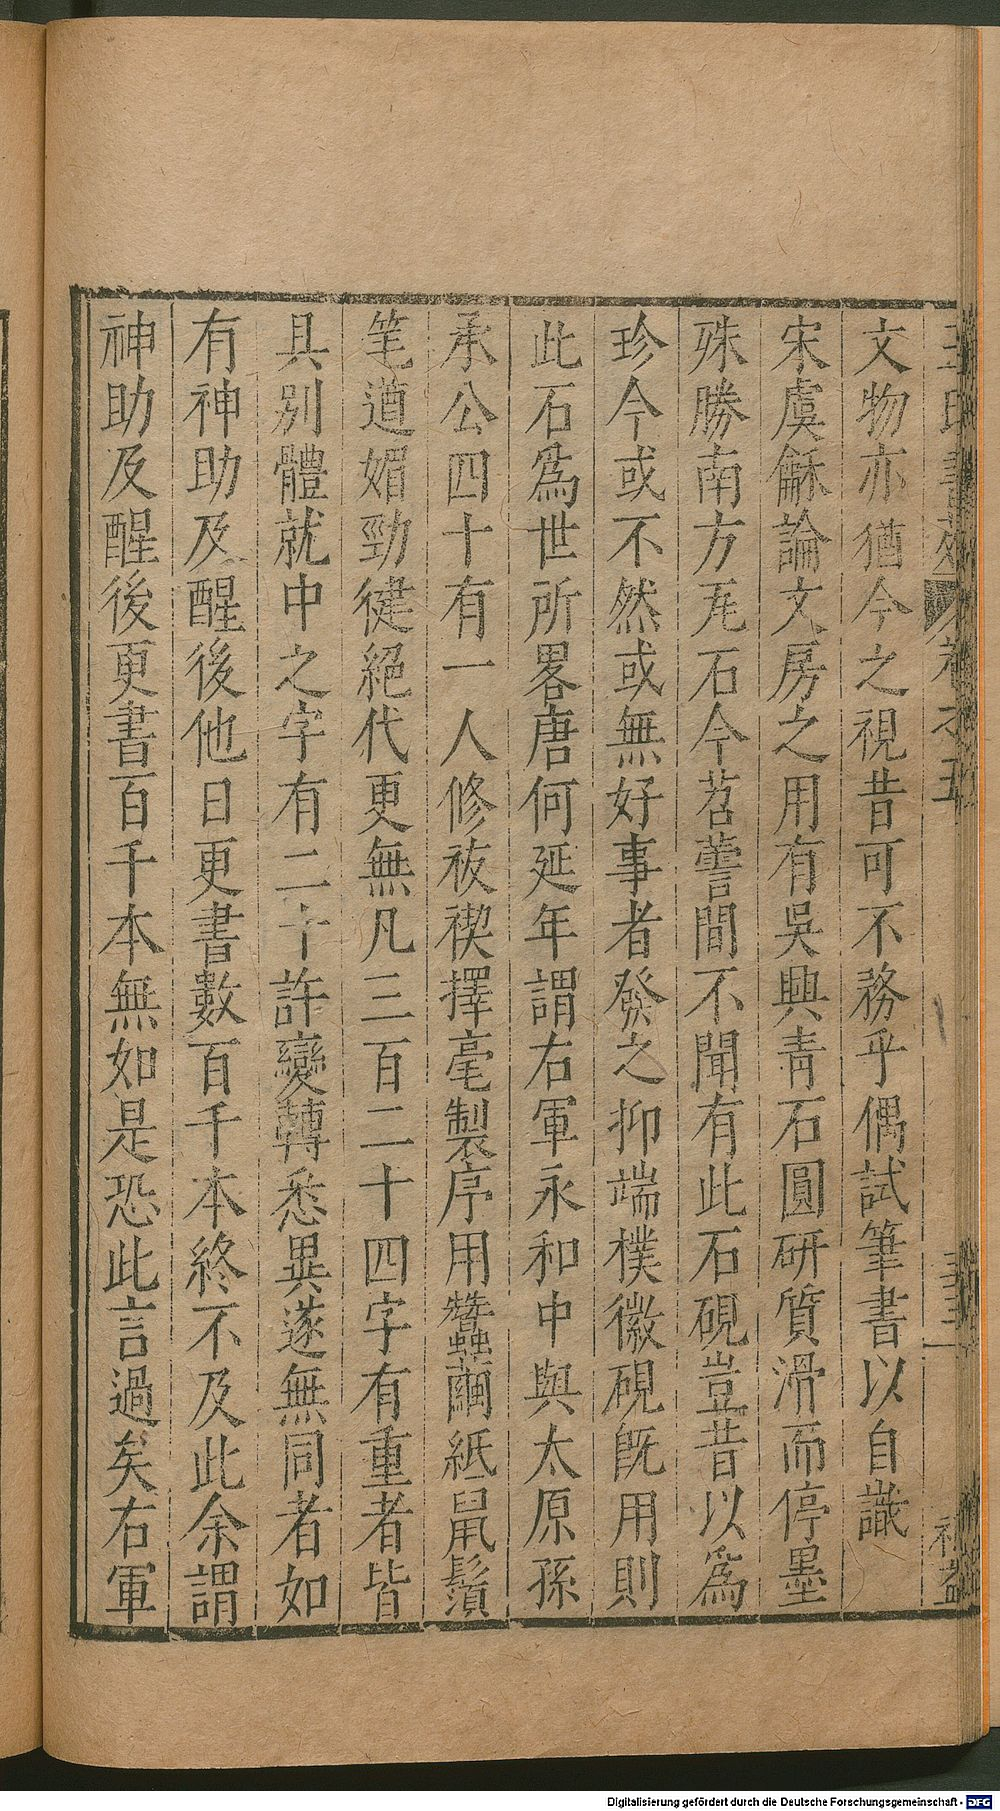 王氏書苑 卷之五
文物亦猶今之視昔可不務乎偶試筆書以自識
宋虞龢論文房之用有吳興青石圓研質滑而停墨
殊勝南方瓦石今苕霅間不聞有此石硯豈昔以為
珍今或不然或無好事者發之抑端樸徽硯旣用則
此石為世所畧唐何延年謂右軍永和中與太原孫
承公四十有一人修祓禊擇毫製序用蠶繭紙鼠鬚
笔遒媚勁健絕代更無凡三百二十四字有重者皆
具別體就中之字有二十許變轉悉異遂無同者如
有神助及醒後他日更書數百千本終不及此余謂
神助及醒後更書百千本無如是恐此言過矣右軍
Digitalisierung gefördert durch die Deutsche Forschungsgemeinschaft - DFG